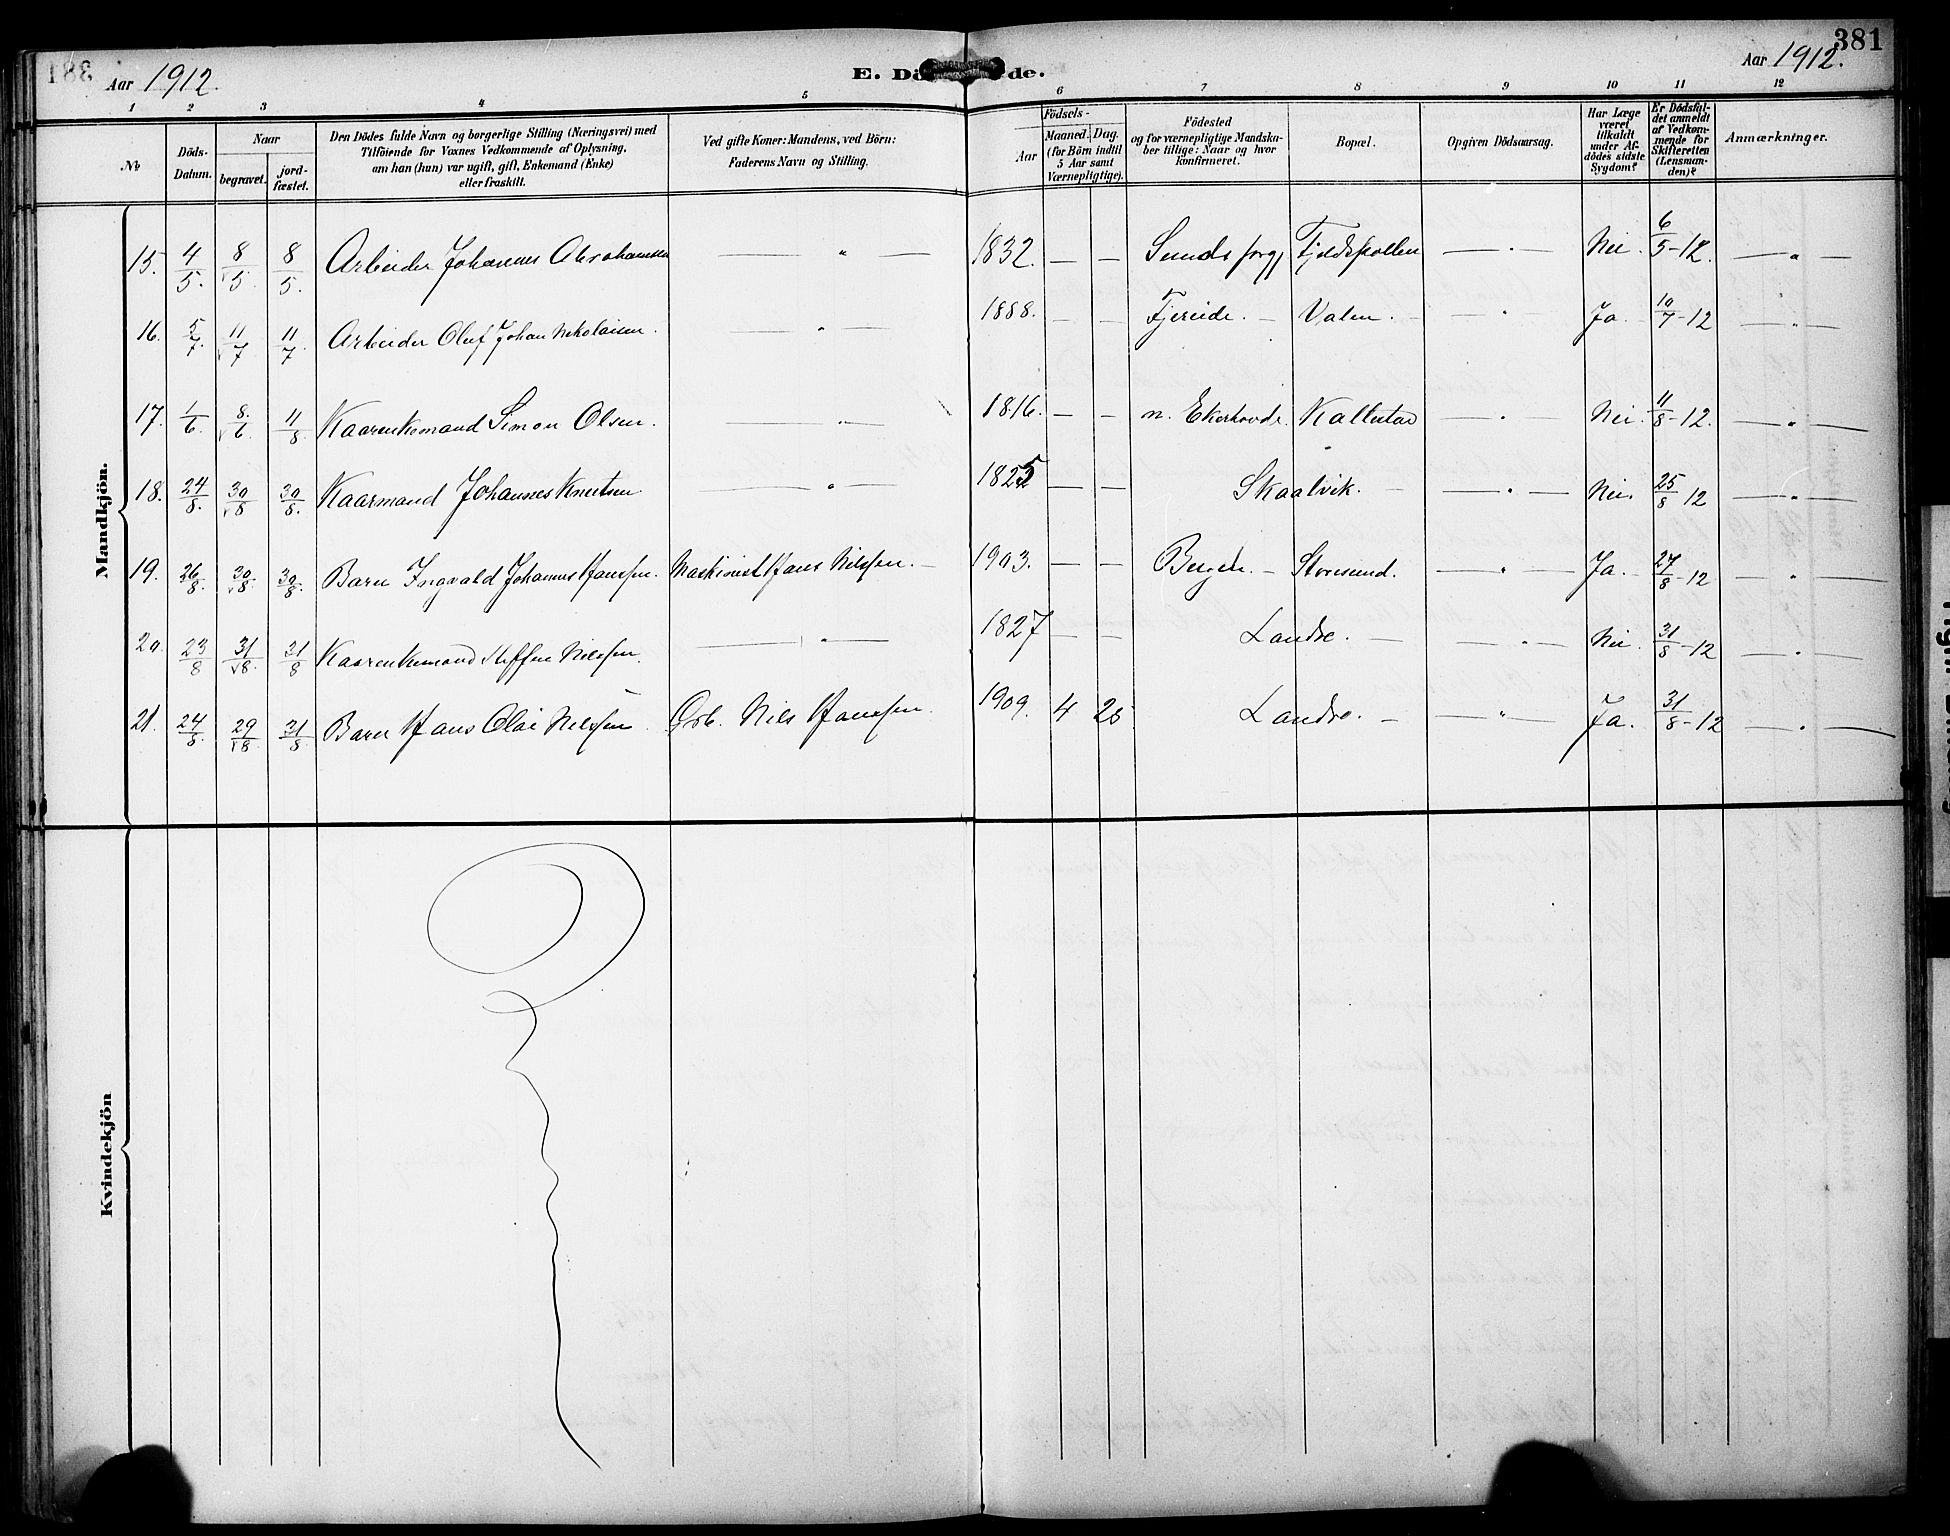 381
Aar 1912.
E. Dö de.
Aar 1912.
1 2 3 4 5 6 7 8 9 10 11 12
No
Döds-Datum.
Naar
begravet.
jord-fæstet.
Den Dödes fulde Navn og borgerlige Stilling (Næringsvei) med
Tilföiende for Voxnes Vedkommende af Oplysning,
om han (hun) var ugift, gift, Enkemand (Enke)
eller fraskilt.
Ved gifte Koner: Mandens, ved Börn:
Faderens Navn og Stilling.
Födsels-
Aar
Maaned. Dag.
(for Börn indtil
5 Aar samt
Værnepligtige).
Födested
og for værnepligtige Mandska-
ber tillige: Naar og hvor
konfirmeret.
Bopæl.
Opgiven Dödsaarsag.
Har Læge
været
tilkaldt
under Af-
dödes sidste
Sygdom?
Er Dödsfal-
det anmeldt
af Vedkom-
mende for
Skifteretten
(Lensman-
den)?
Anmærkninger.
Mandkjön.
15. 4/5. 8/5. 8/5. Arbeider Johannes Abrahamsen — " — 1832. — — Sunds Fjeldspollen — " — Nei. 6/5-12. — " —
16. 5/7. 11/7 11/7 Arbeider Oluf Johan Nikolaisen. — " — 1888. — — Fjereide. — Valen. — — " — Ja. 10/7-12 — " —
17. 1/6. 8./6. 11/8 Kaarenkemand Simon Olsen. — " — 1816. — — n. Ekerhovde. Kallestad — " — Nei. 11/8-12. — " —
18. 24/8. 30/8 30/8. Kaarmand Johannes Knutsen — " — 1825 — — Skaalvik. — — " — Nei. 25/8-12 — " —
19. 26/8. 30/8. 30/8. Barn Ingvald Johannes Hanssen. Maskinist Hans Nilssen. — 1903. — — Bergen. — Storesund. — " — Ja. — 27/8-12 — " —
20. 23/8 31/8. 31/8 Kaarenkemand Steffen Nilssen. — " — 1827 — — Landro. — — " — Nei. 31/8-12 — " —
21. 24/8. 29/8. 31/8 Barn Hans Olai Nilssen. Grb. Nils Hanssen. 1909. 4 25 Landro. — — " — Ja. 31/8-12 — " —
Kvindekjön